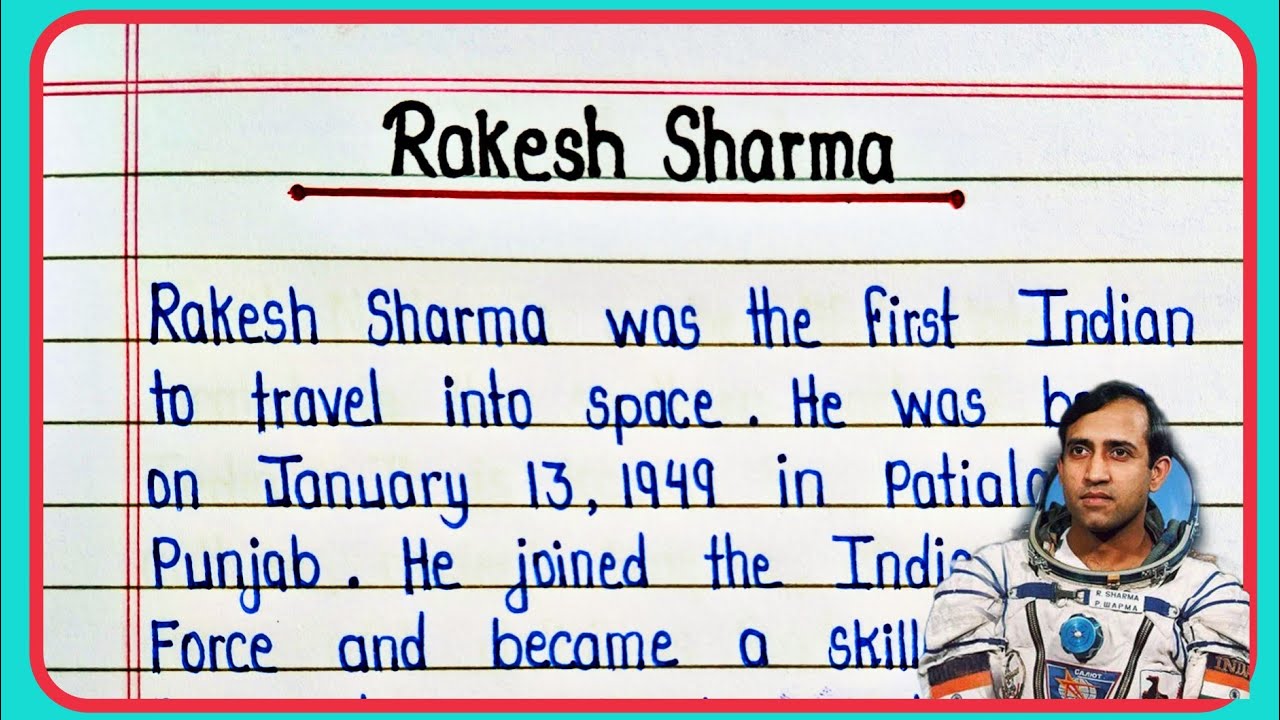 Rakesh Sharma
Rakesh Sharma was the first Indian
to travel into space. He was
on January 13, 1949 in
Punjab. He joined the
Force and became a
R. SHARMA
Р. ШАРМА
САЛЮТ